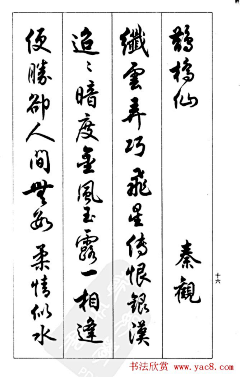 鵲橋仙 秦觀
纖雲弄巧飛星傳恨銀漢
迢〻暗度金風玉露一相逢
便勝卻人間無數柔情似水
十六
书法欣赏 www.yac8.com